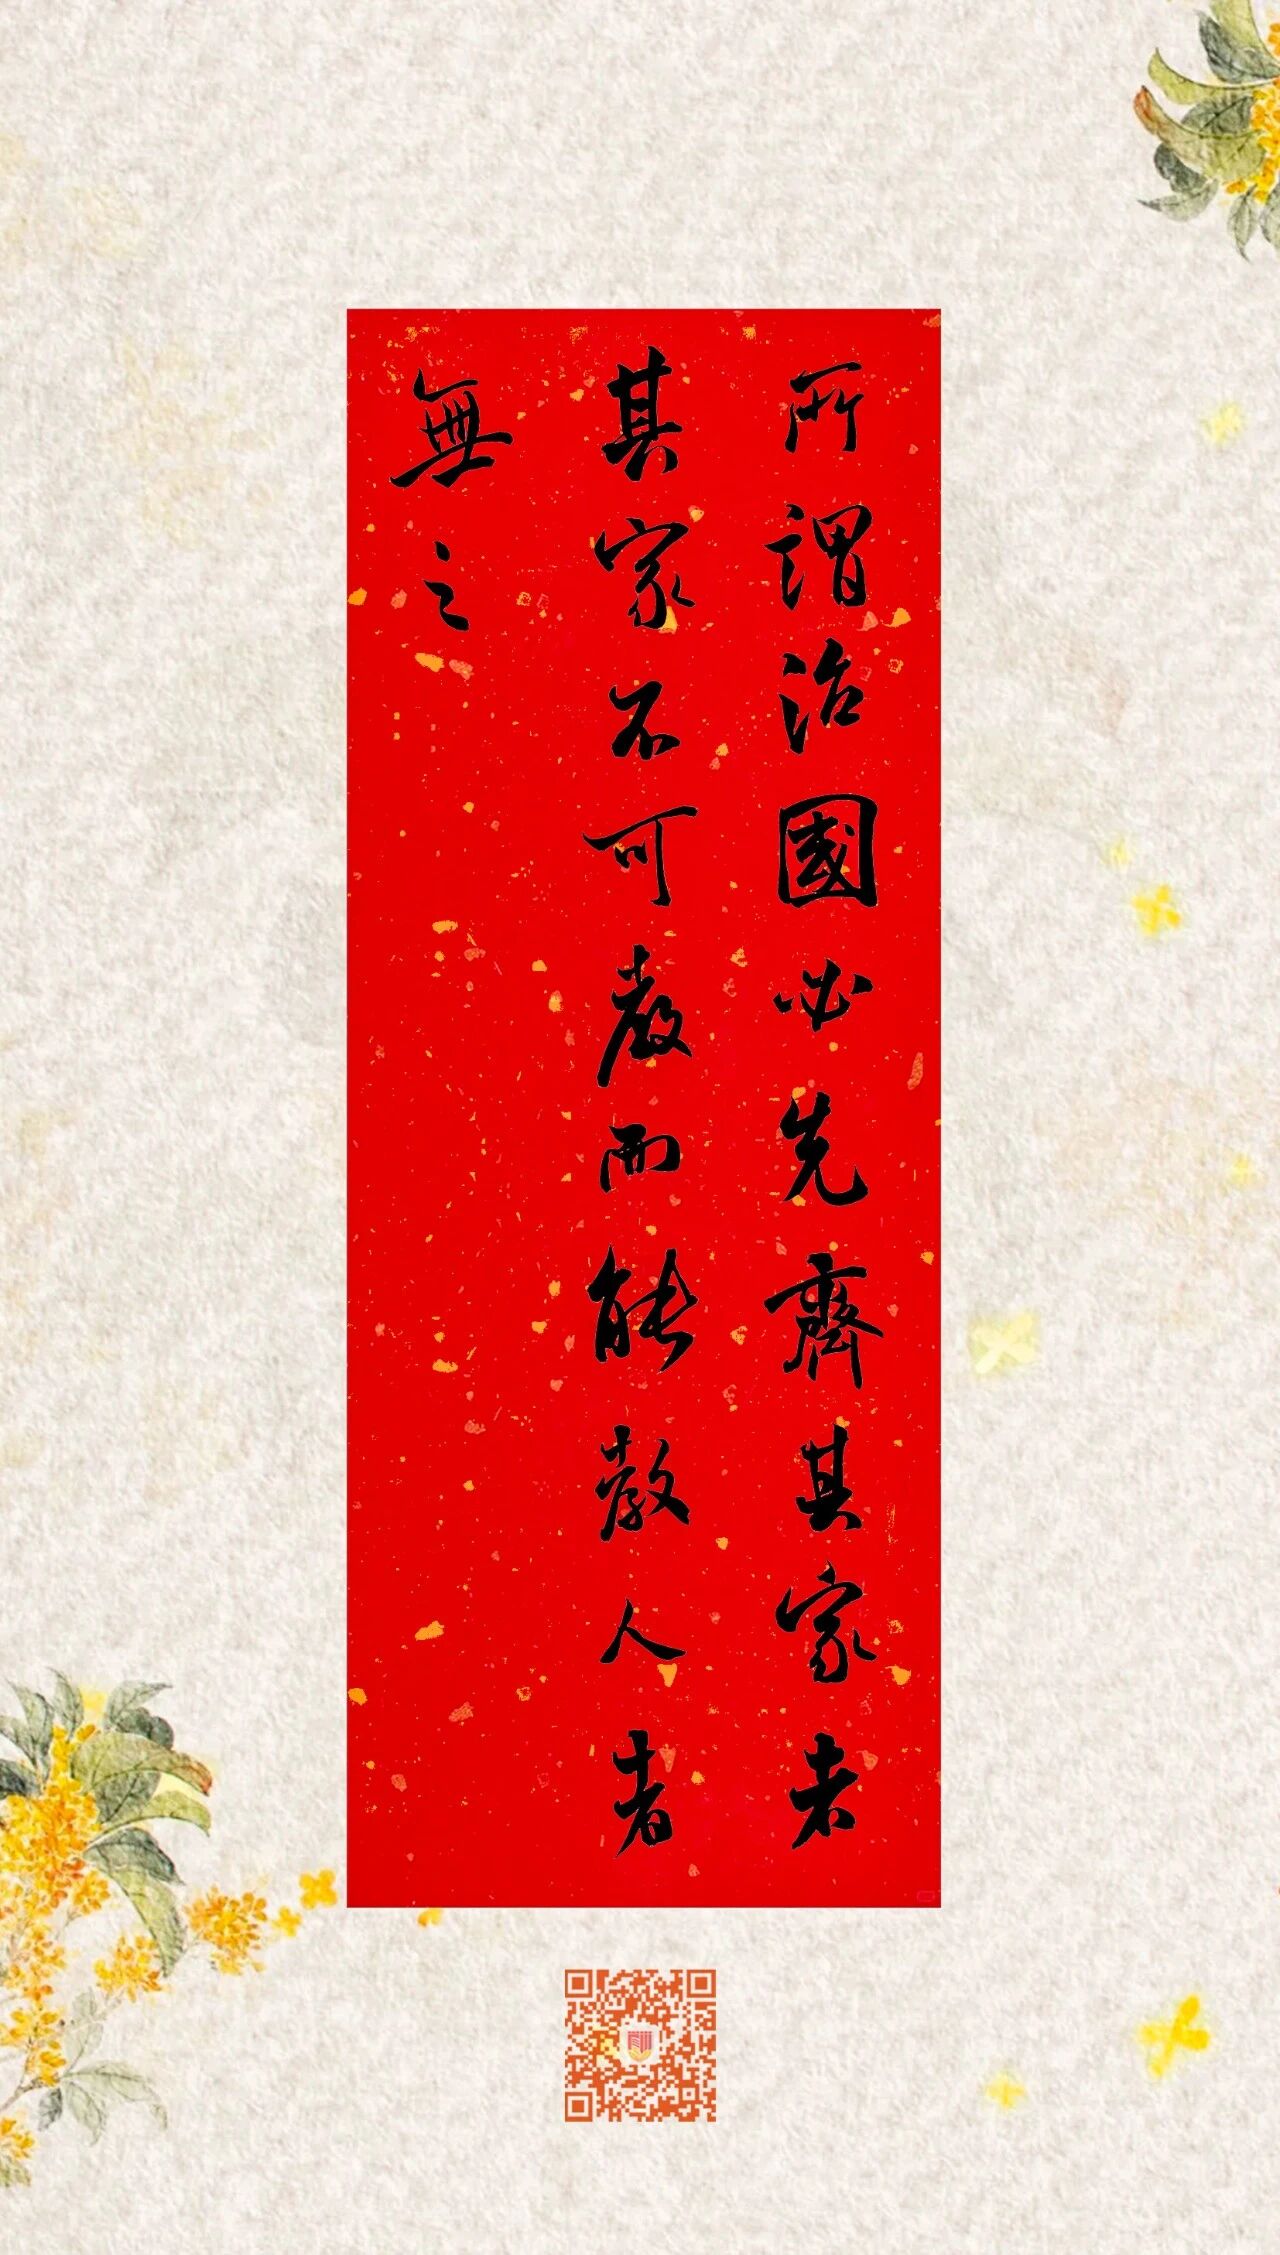 所謂治國必先齊其家者
其家不可教而能教人者
無之